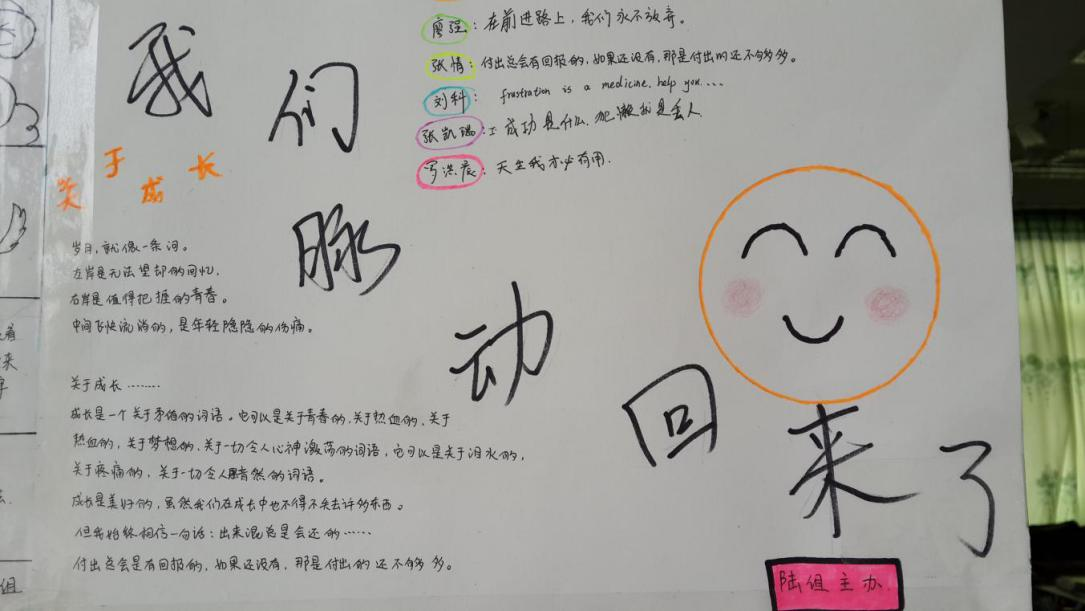 我们脉动回来了
廖强：在前进路上，我们永不放弃。
张情：付出总会有回报的，如果还没有，那是付出的还不够多。
刘科： frustration is a medicine. help you....
张凯瑞：成功是什么，犯懒就是丢人
天生我才必有用.
关于成长
岁月，就像一条河。
左岸是无法望却的回忆，
右岸是值得把握的青春。
中间飞快流淌的，是年轻隐隐的伤痛。
关于成长………
成长是一个关于矛盾的词语。它可以是关于青春的、关于热血的、关于
热血的，关于梦想的、关于一切令人心神激荡的词语，它可以是关于泪水的，
关于疼痛的，关于一切令人黯然的词语。
成长是美好的，虽然我们在成长中也不得不失去许多东西。
但我始终相信一句话：出来混总是会还的……
付出总会是有回报的，如果还没有，那是付出的还不够多。
陆组主办